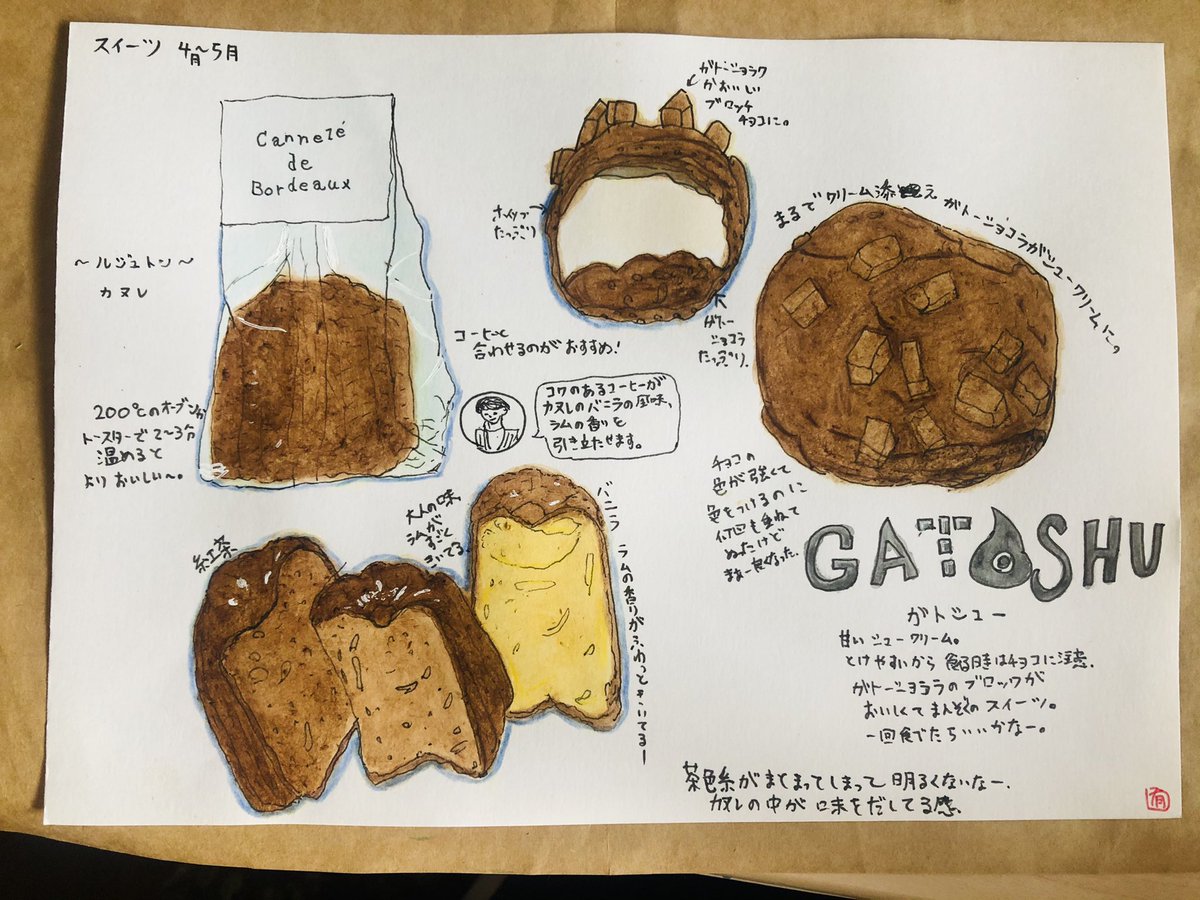 スイーツ 4月〜5月
Cannelé
de
Bordeaux
〜ルジュトン〜
カヌレ
200℃のオーブンか
トースターで2〜3分
温めると
よりおいしい〜。
ガトーショラク
がおいしい
ブロッチ
チョコに。
ホイップ
たっぷり
ガトー
ショコラ
たっぷり.
コーヒーと
合わせるのがおすすめ!
コクのあるコーヒーが
カヌレのバニラの風味、
ラムの香りを
引き立たせます。
まるでクリーム添え ガトーショコラがシュークリームに。
チョコの
色が強くて
色をつけるのに
何回も重ねて
ぬったけど
まあー良くなった.
GATOSHU
ガトシュー
甘いシュークリーム。
とけやすいから 食る時はチョコに注意.
ガトーショララのブロックが
おいしくてまんぞくのスイーツ。
一回食でたらいいかなー。
紅茶
大人の味、
ラムが
すごく
きいてる
バニラ ラムの香りがふわっときいてるー
茶色系がまとまってしまって 明るくないなー.
カヌレの中が 味をだしてる感.